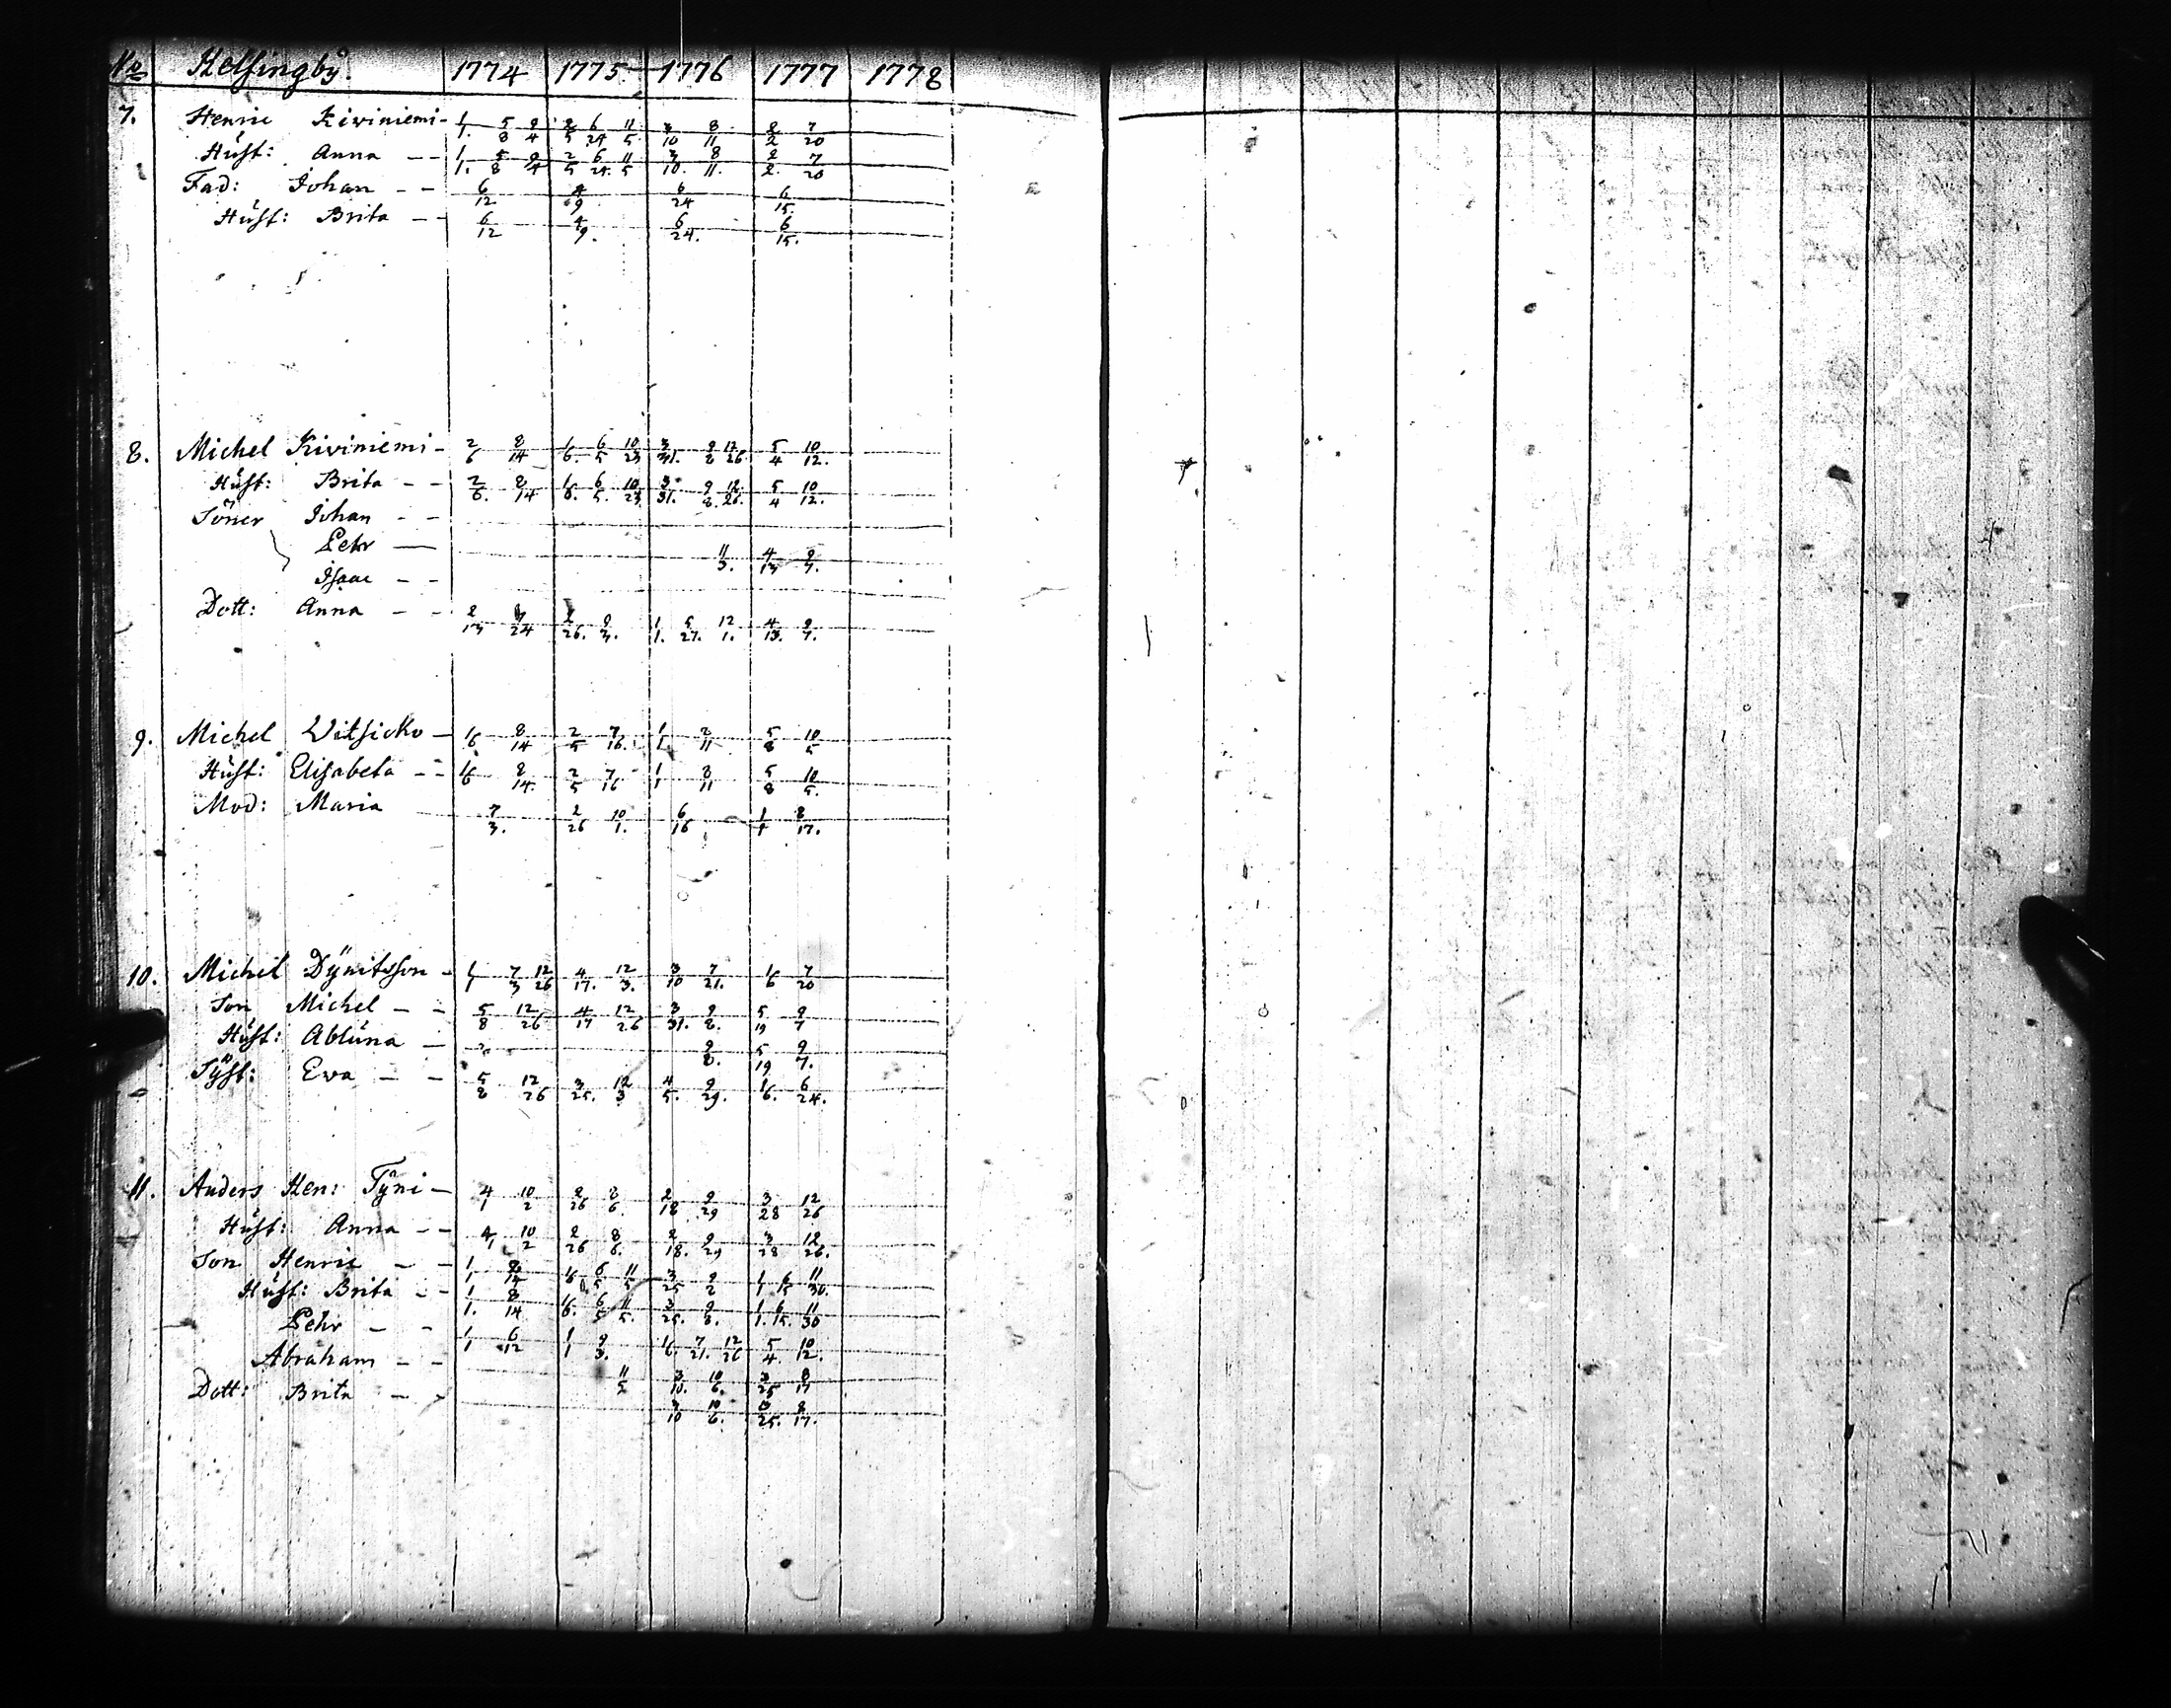 No Helsingby. 1774 1775 1776 1777 1778
7. Henric Kiviniemi - 1/1. 5/8 9/4 2/5 6/24 11/5 3/10 8/11 2/2 7/20
Hüst: Anna - - 1/1. 5/8 9/4 2/5 6/24. 11/5 3/10. 8/11. 2/2. 7/20
Fad: Johan - - 6/12 4/9 6/24 6/15.
Hüst: Brita - - 6/12 4/9. 6/24. 6/15.
8. Michel Kiviniemi - 2/6 8/14 1/6. 6/5 10/23 3/31. 9/8 12/26 5/4 10/12.
Hüst: Brita - - 2/6. 8/14 1/6. 6/5. 10/23 3/31. 9/8. 12/26. 5/4 10/12.
Söner Johan - -
Pehr — 11/3. 4/13 9/7.
Isaac - -
Dott: Anna - - 2/13 /24 2/26. 9/3. 1/1. 5/27. 12/1. 4/13. 9/7.
9. Michel Witsicko - 1/6 8/14 2/5 7/16. 1/1 /11 5/8 10/5
Hüst: Elisabeta - - 1/6 8/14. 2/5 7/16 1/1 8/11 5/8 10/5.
Mod: Maria 7/3. 2/26 10/1. 6/16 1/1 8/17.
10. Michel Dÿnitsson - 1/1 7/3 12/26 4/17. 12/3. 3/10 7/21. 1/6 7/20
Son Michel - - 5/8 12/26 4/17 12/26 3/31. 9/8. 5/19 9/7
Hüst: Ablüna - 9/8. 5/19 9/7.
Sÿst: Ewa - - 5/8 12/26 3/25. 12/3 4/5. 9/29. 1/6. 6/24.
11. Anders Hen: Tÿni - 4/1 10/2 2/26 8/6. 2/18 9/29 3/28 12/26
Hüst: Anna - - 4/1 10/2 2/26 8/6. 2/18. 9/29 3/28 12/26.
Son Henric - - 1/1 8/14 1/6 6/5 11/5 3/25 9/8 1/1 6/15 11/30.
Hüst: Brita - - 1/1. 8/14 1/6. 6/5 11/5. 3/25. 9/8. 1/1. 6/15. 11/30
Pehr - - 1/1 6/12 1/1 9/3. 1/6. 7/21. 12/26 5/4. 10/12.
Abraham - - 11/5 3/10. 10/6. 3/25 8/17
Dott: Brita - - 3/10 10/6. 3/25. 8/17.